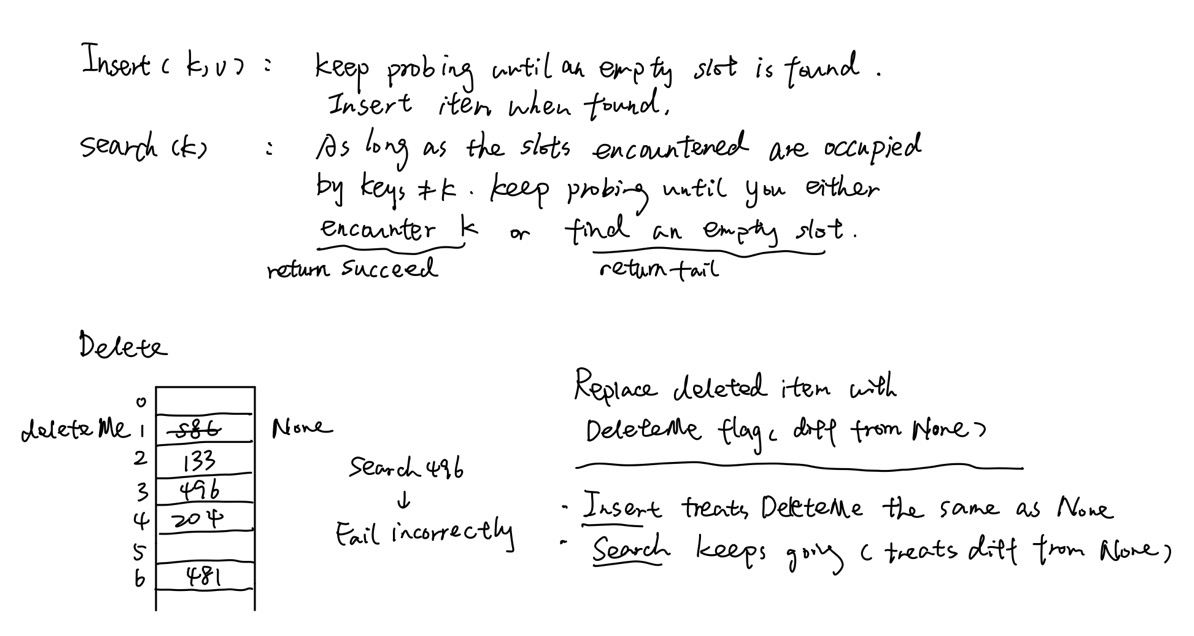 Insert (k,v) : keep probing until an empty slot is found.
Insert item when found.
search (k) : As long as the slots encountered are occupied
by keys ≠ k. keep probing until you either
encounter k or find an empty slot.
return succeed return fail
Delete
0
deleteMe 1 586 None
2 133
3 496
4 204
5
6 481
Search 496
↓
Fail incorrectly
Replace deleted item with
DeleteMe flag (diff from None)
· Insert treats DeleteMe the same as None
· Search keeps going (treats diff from None)